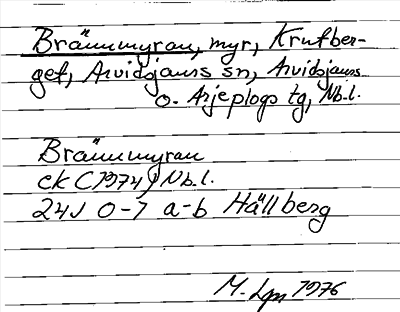 Brännmyran, myr, Krutber-
get, Arvidsjaurs sn, Arvidsjaurs
o. Arjeplogs tg, Nb.l.
Brännmyran
ek (1974) Nb.l.
24J 0-7 a-b Hällberg
M. Lgn 1976